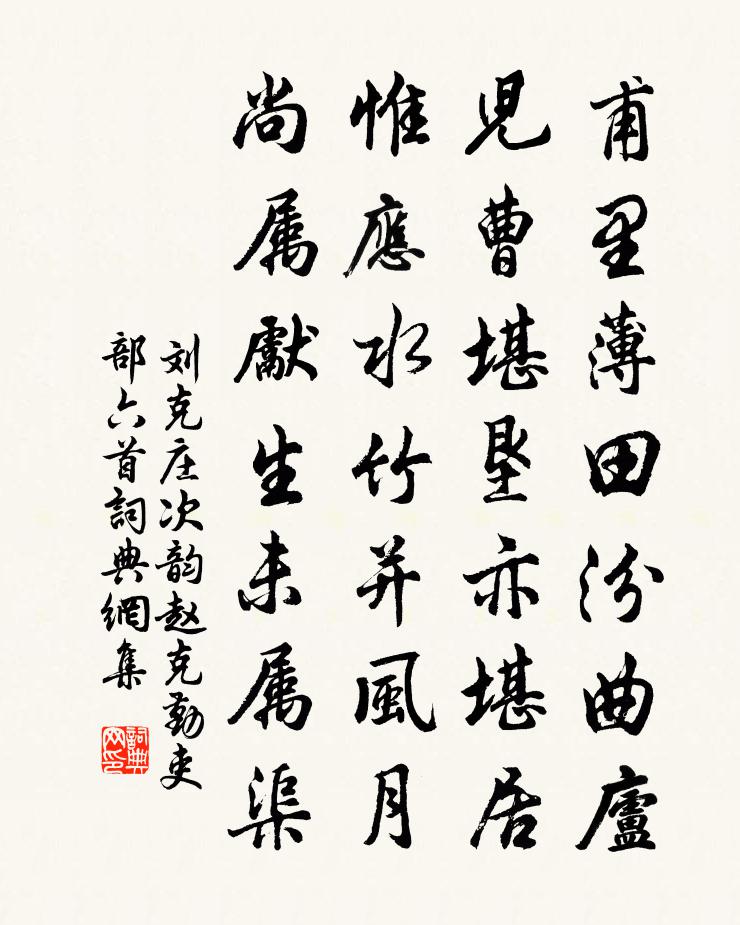 甫里薄田汾曲廬
児曹堪垦亦堪居
惟應水竹并風月
尚属獻生未属渠
刘克庄次韵赵克勤吏
部六首詞典網集
詞典网印